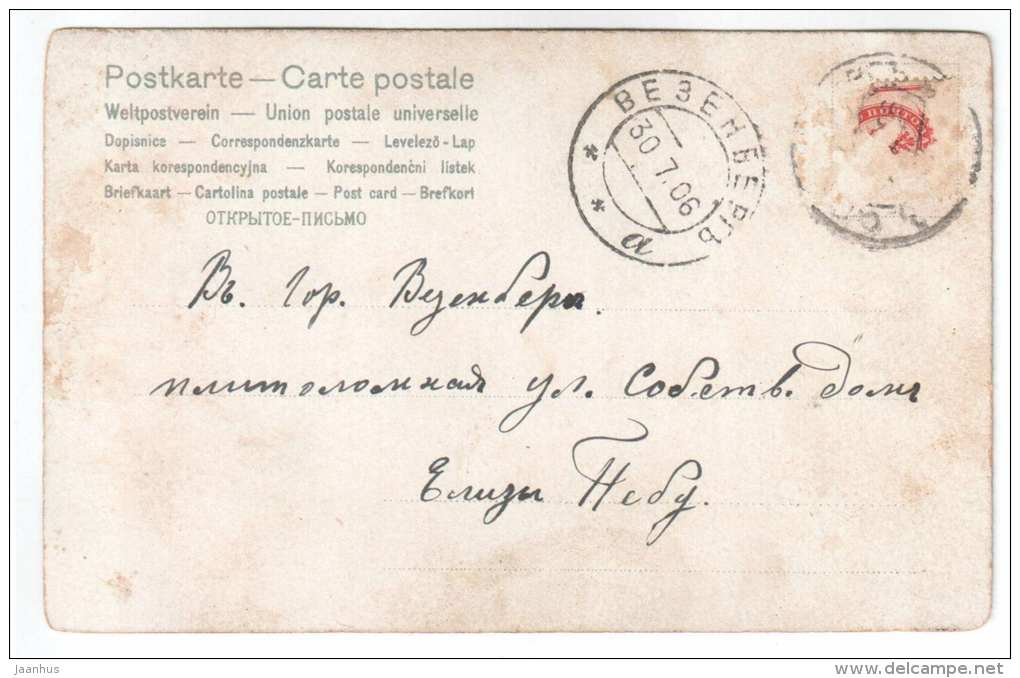 Postkarte — Carte postale
Weltpostverein — Union postale universelle
Dopisnice — Correspondenzkarte — Levelező-Lap
Karta korespondencyjna — Korespondenční listek
Briefkaart — Cartolina postale — Post card — Brefkort
ОТКРЫТОЕ-ПИСЬМО
ВЕЗЕНБЕРГЪ
30 7.06
* а *
Въ. Гор. Везенберг.
плитоломная ул. Собств. Домъ
Елизы Пебу.
jaanhus
www.delcampe.net